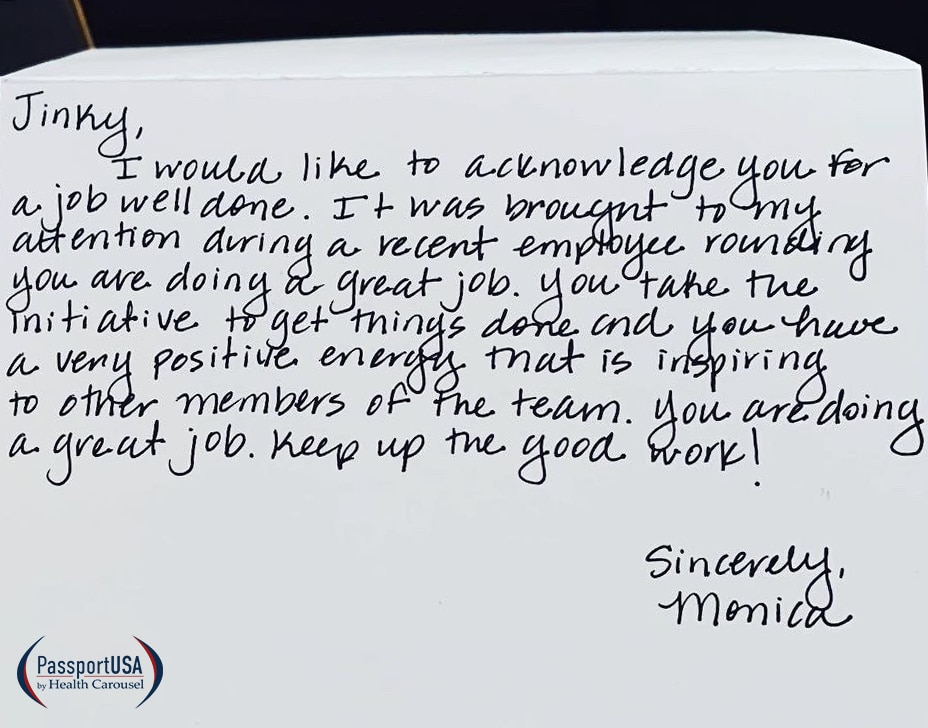 Jinky,
I would like to acknowledge you for
a job well done. It was brought to my
attention during a recent employee rounding
you are doing a great job. You take the
initiative to get things done and you have
a very positive energy that is inspiring
to other members of the team. You are doing
a great job. Keep up the good work!
Sincerely,
Monica
PassportUSA
by Health Carousel